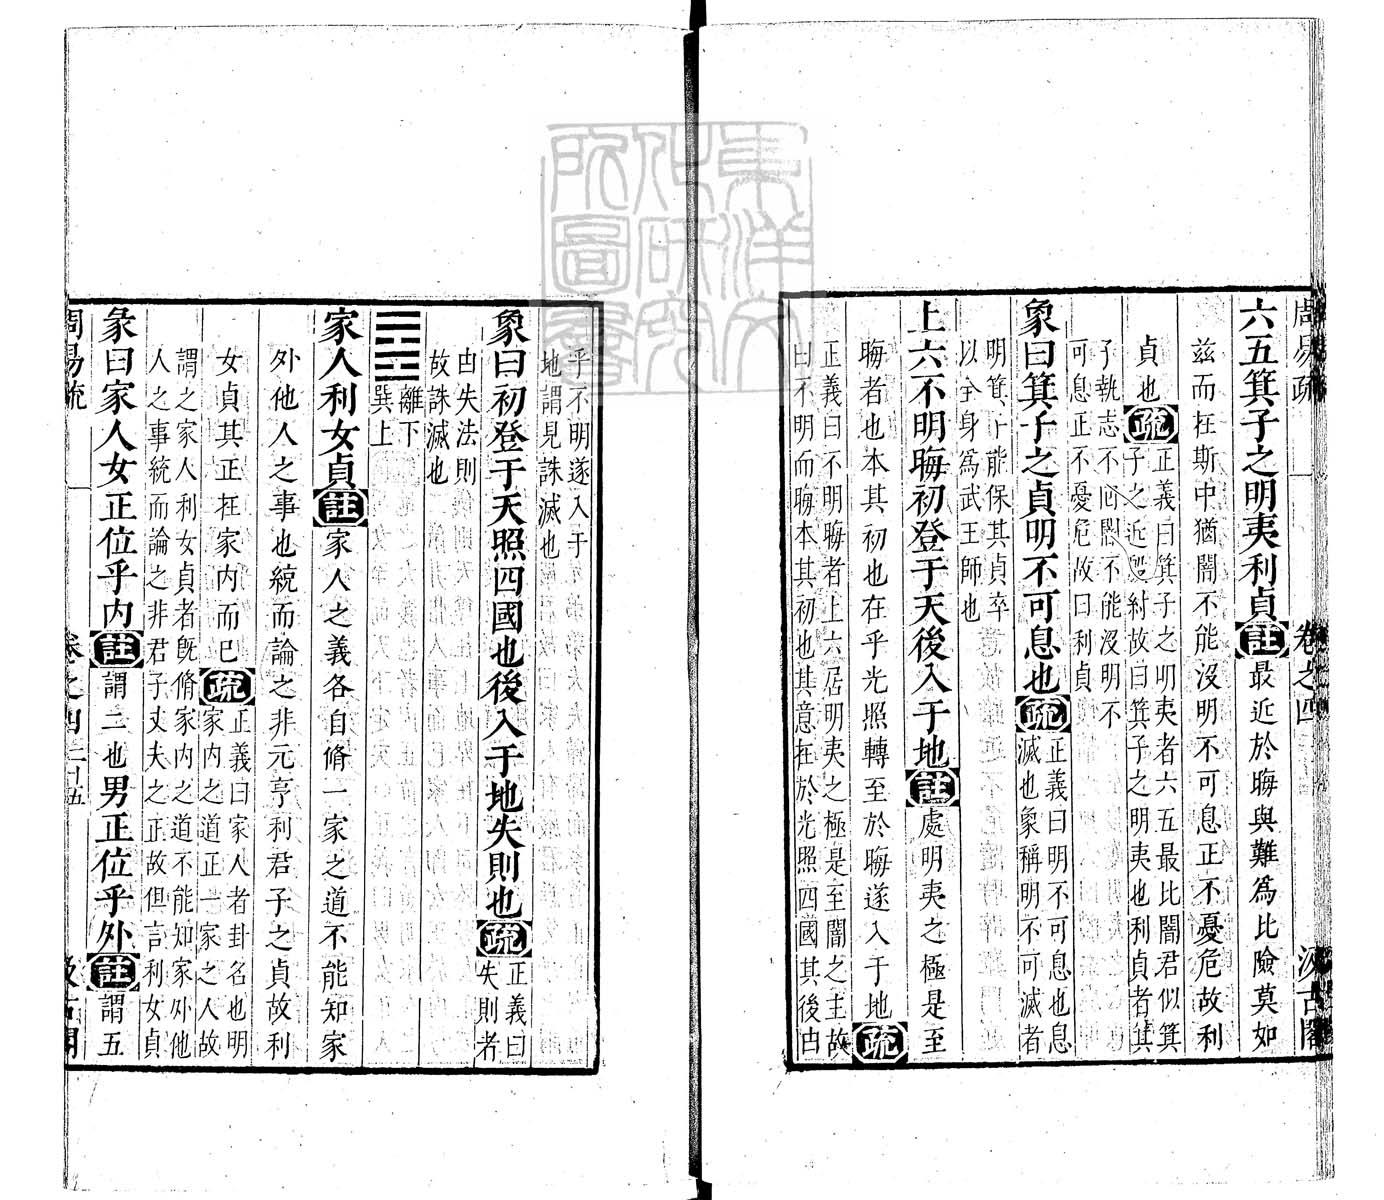 周易疏 卷之四 汲古閣
六五箕子之明夷利貞註最近於晦與難爲比險莫如
兹而在斯中猶闇不能沒明不可息正不憂危故利
貞也疏正義曰箕子之明夷者六五最比闇君似箕
子之近殷紂故曰箕子之明夷也利貞者箕
子執志不回闇不能沒明不
可息正不憂危故曰利貞
象曰箕子之貞明不可息也疏正義曰明不可息也息
滅也象稱明不可滅者
明箕子能保其貞卒
以全身爲武王師也
上六不明晦初登于天後入于地註處明夷之極是至
晦者也本其初也在乎光照轉至於晦遂入于地疏
正義曰不明晦者上六居明夷之極是至闇之主故
曰不明而晦本其初也其意在於光照四國其後由
乎不明遂入于
地謂見誅滅也
象曰初登于天照四國也後入于地失則也疏正義曰
失則者
由失法則
故誅滅也
離下
巽上
家人利女貞註家人之義各自脩一家之道不能知家
外他人之事也統而論之非元亨利君子之貞故利
女貞其正在家内而已疏正義曰家人者卦名也明
家内之道正一家之人故
謂之家人利女貞者旣脩家内之道不能知家外他
人之事統而論之非君子丈夫之正故但言利女貞
彖曰家人女正位乎内註謂二也男正位乎外註謂五
周易疏 卷之四 二十五 汲古閣
東洋文化研究所圖書